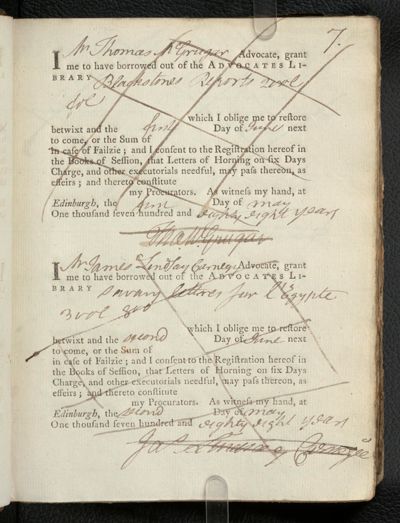 7.
I Mr Thomas McGrugar Advocate, grant
me to have borrowed out of the ADVOCATES LI-
BRARY Blackstones Reports 2 vols
fol
which I oblige me to restore
betwixt and the first Day of June next
to come, or the Sum of
in case of Failzie; and I consent to the Registration hereof in
the Books of Session, that Letters of Horning on six Days
Charge, and other executorials needful, may pass thereon, as
effeirs; and thereto constitute
my Procurators. As witness my hand, at
Edinburgh, the first Day of May
One thousand seven hundred and eighty eight years
Tho McGrugar
I Mr James Lindsay Carnegie Advocate, grant
me to have borrowed out of the ADVOCATES LI-
BRARY Savary lettres sur l'Egypte
3 vol 8vo
which I oblige me to restore
betwixt and the second Day of June next
to come, or the Sum of
in case of Failzie; and I consent to the Registration hereof in
the Books of Session, that Letters of Horning on six Days
Charge, and other executorials needful, may pass thereon, as
effeirs; and thereto constitute
my Procurators. As witness my hand, at
Edinburgh, the second Day of May
One thousand seven hundred and eighty eight years
Jas Lindsay Carnegie